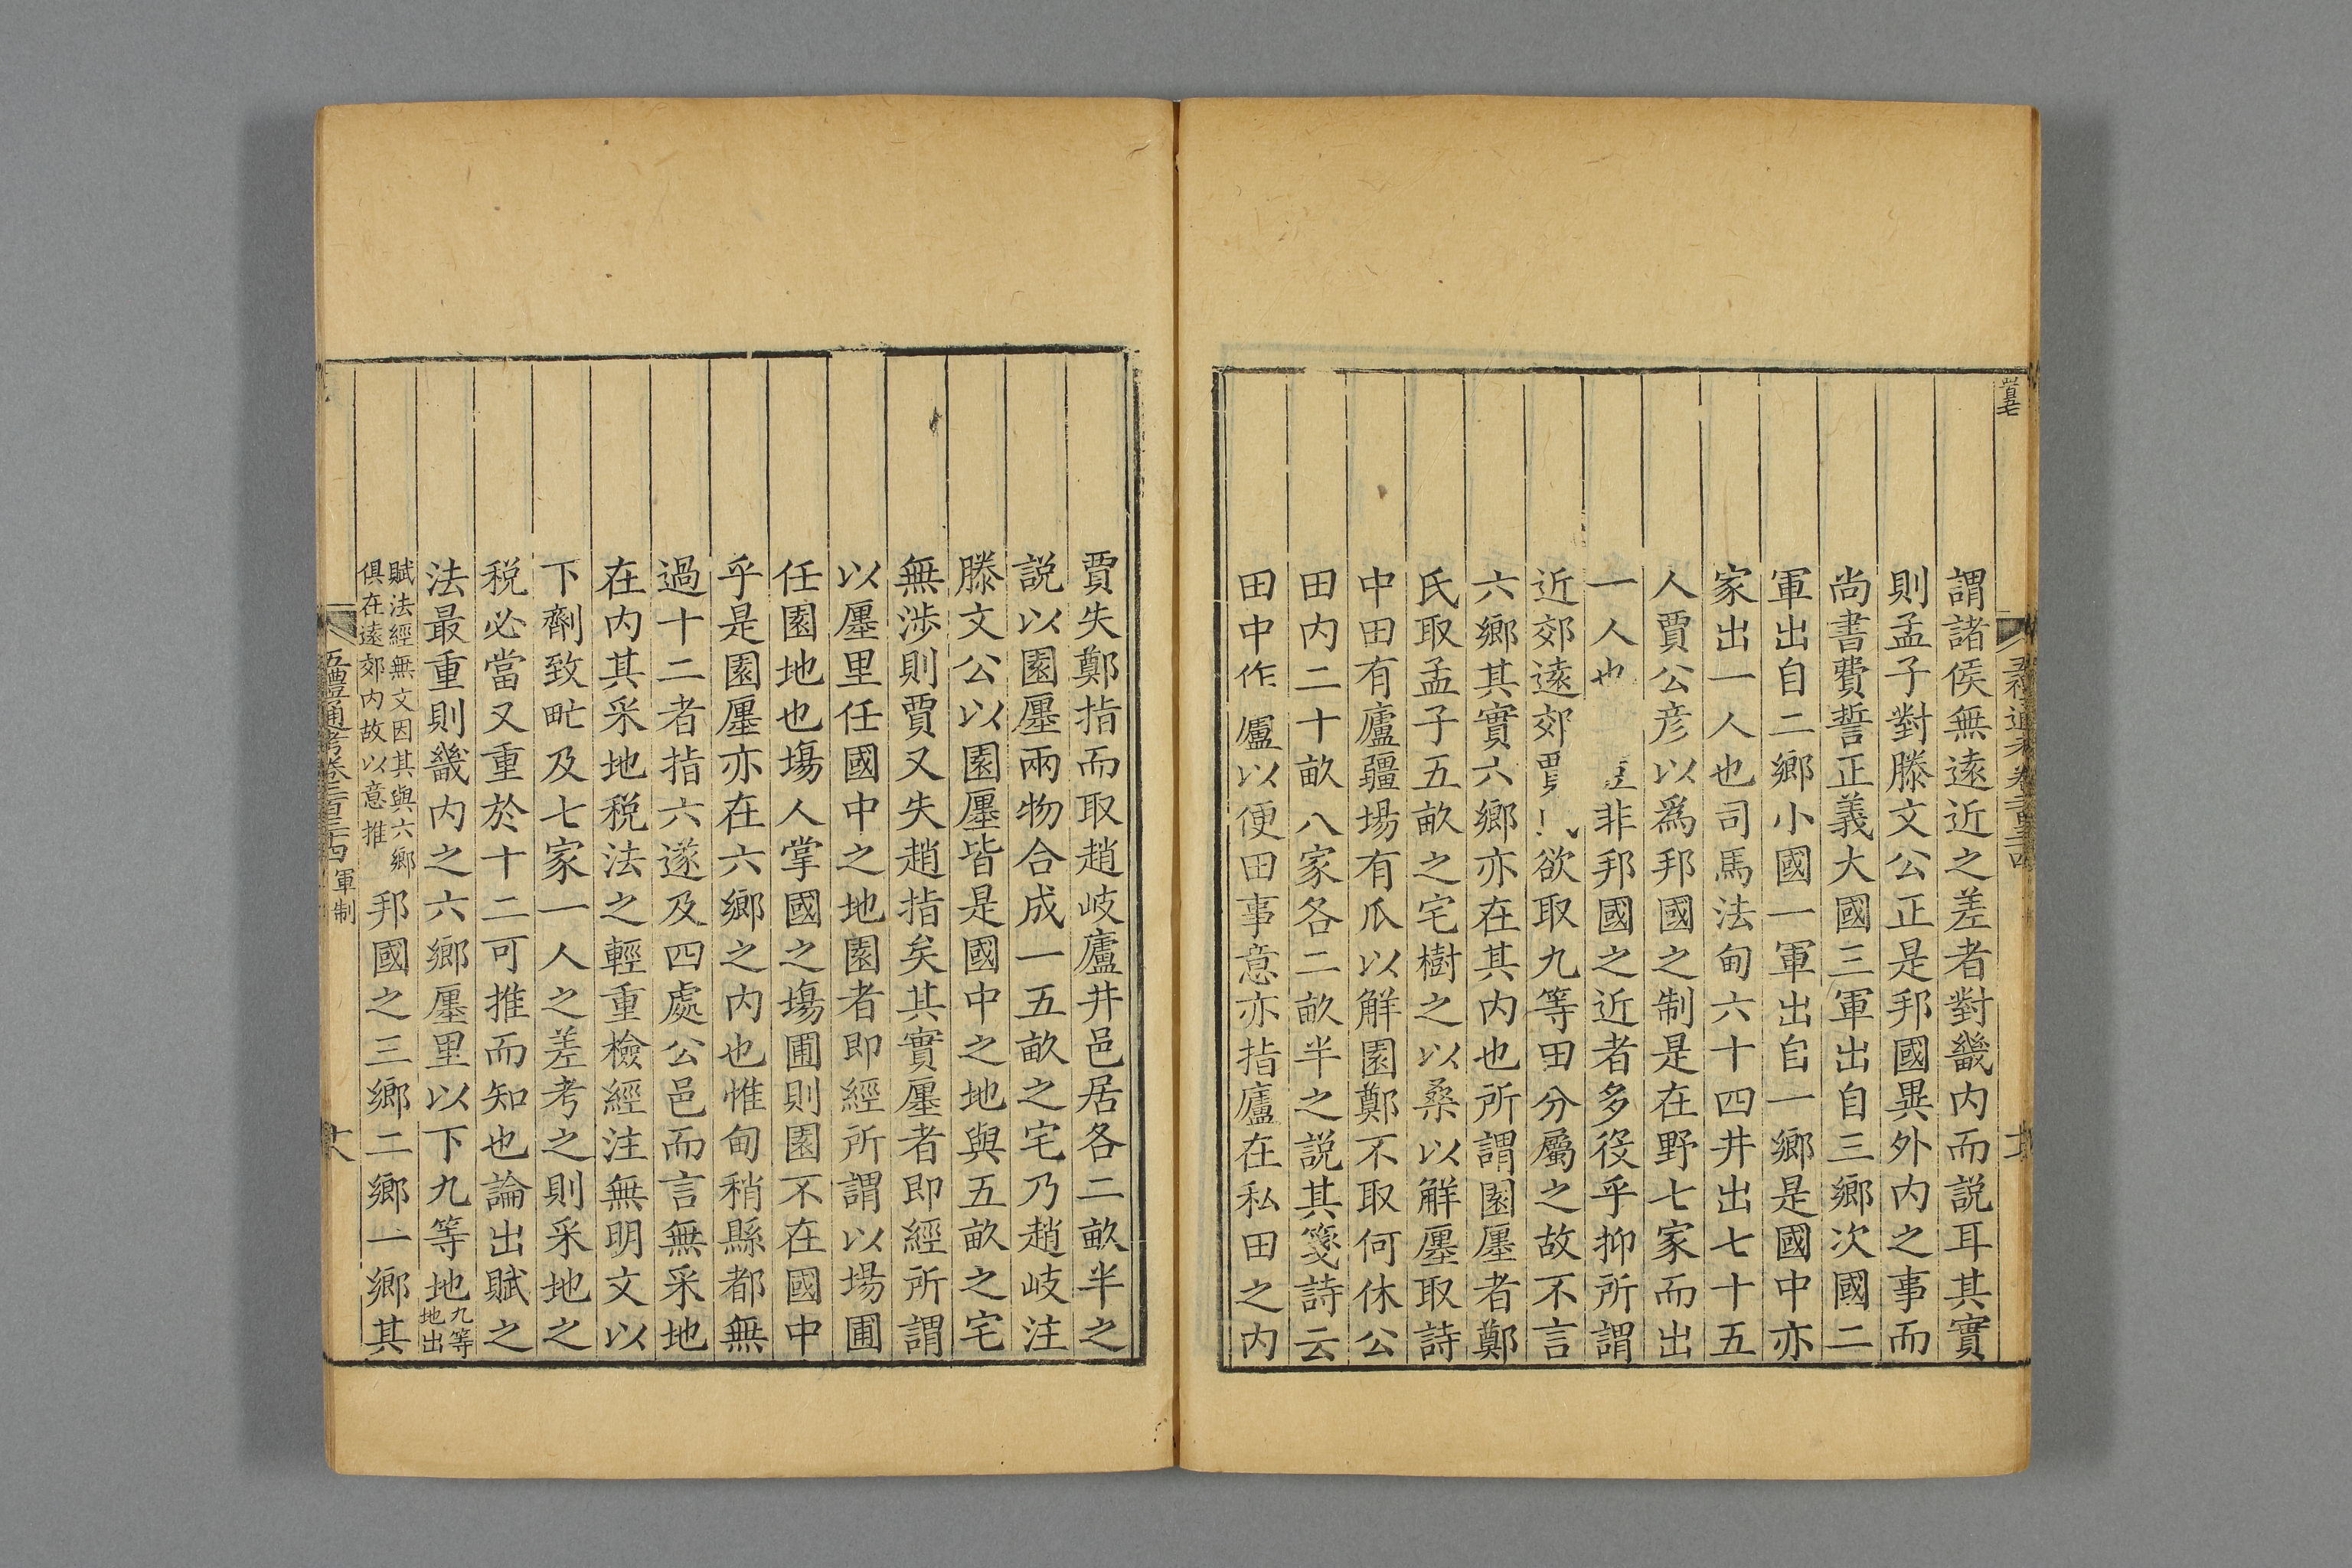 謂諸侯無遠近之差者對畿内而説耳其實
則孟子對滕文公正是邦國異外内之事而
尚書費誓正義大國三軍出自三鄉次國二
軍出自二鄉小國一軍出自一鄉是國中亦
家出一人也司馬法甸六十四井出七十五
人賈公彦以爲邦國之制是在野七家而出
一人也非邦國之近者多役乎抑所謂
近郊遠郊欲取九等田分屬之故不言
六鄉其實六鄉亦在其内也所謂園廛者鄭
氏取孟子五畝之宅樹之以桑以解廛取詩
中田有廬疆場有瓜以解園鄭不取何休公
田内二十畝八家各二畝半之説其箋詩云
田中作廬以便田事意亦指廬在私田之内
賈失鄭指而取趙岐廬井邑居各二畝半之
説以園廛兩物合成一五畝之宅乃趙岐注
滕文公以園廛皆是國中之地與五畝之宅
無涉則賈又失趙指矣其實廛者即經所謂
以廛里任國中之地園者即經所謂以場圃
任園地也場人掌國之場圃則園不在國中
乎是園廛亦在六鄉之内也惟甸稍縣都無
過十二者指六遂及四處公邑而言無采地
在内其采地税法之輕重檢經注無明文以
下劑致甿及七家一人之差考之則采地之
税必當又重於十二可推而知也論出賦之
法最重則畿内之六鄉廛里以下九等地九等
地出
賦法經無文因其與六鄉
俱在遠郊内故以意推邦國之三鄉二鄉一鄉其
五禮通考卷二百三十四 軍制